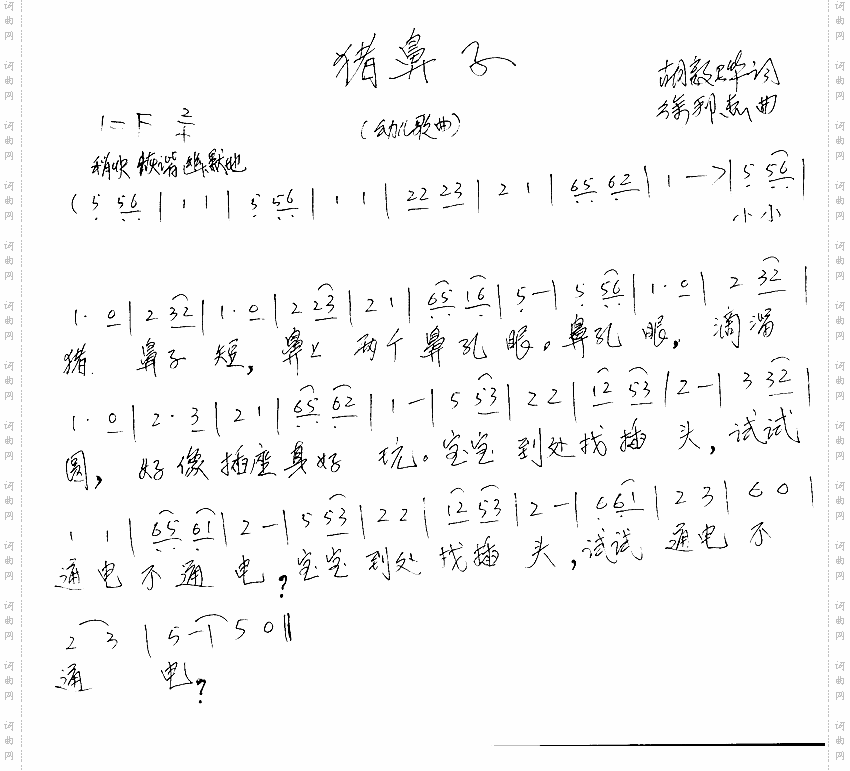 猪鼻子
胡敦骅词
1=F 2/4
(幼儿歌曲)
徐邦杰曲
稍快 诙谐幽默地
(5 56 | 1 1 | 5 56 | 1 1 | 22 23 | 2 1 | 65 62 | 1 —>| 5 56 |
小小
1· 0 | 2 32 | 1· 0 | 2 23 | 2 1 | 65 16 | 5 — | 5 56 | 1· 0 | 2 32 |
猪 鼻子 短, 鼻上 两个 鼻孔 眼。鼻孔 眼, 滴溜
1· 0 | 2· 3 | 2 1 | 65 62 | 1 — | 5 53 | 2 2 | 12 53 | 2 — | 3 32 |
圆, 好像插座真好 玩。宝宝 到处找插 头, 试试
1 1 | 65 61 | 2 — | 5 53 | 2 2 | 12 53 | 2 — | 6 61 | 2 3 | 0 0 |
通电不通 电?宝宝 到处 找插 头,试试 通电不
2 3 | 5 — | 5 0 ‖
通 电?
词曲网